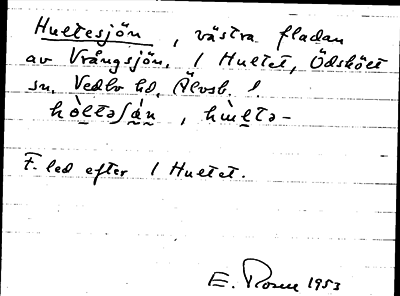 Hultesjön, västra fladan
av Vrångsjön. 1 Hultet, Ödskölt
sn. Vedbo hd. Älvsb. l.
hòltəʃán, hùltə-
F. led efter 1 Hultet.
E. Rosén 1953